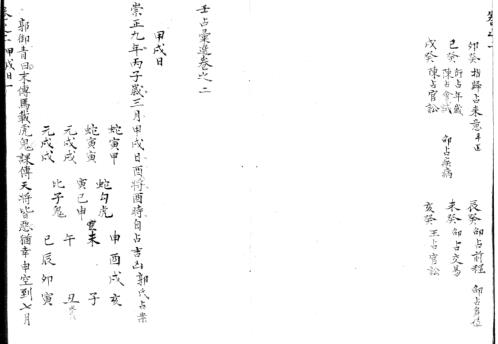 辰癸 邵占前程 邵占名位
卯癸 指歸占來意
未癸 邵占交易
巳癸 占年歲 陳占會試
亥癸 王占官訟
戌癸 陳占官訟 邵占疾病
壬占彙選卷之二
甲戌日
崇正九年丙子歲三月甲戌日酉將酉時自占吉凶郭氏占案
蛇寅甲 蛇勾虎 申酉戌亥
蛇寅寅 寅巳申 未 子
元戌戌 比子鬼 午 丑
元戌戌 巳辰卯寅
郭御青曰末傳馬載虎鬼課傳天將皆惡猶幸申空到七月
卷之二 甲戌日 一